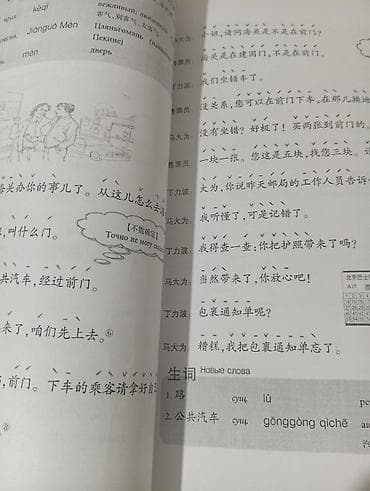 kèqi
вежливый; любезный
客气，别客气，太客气
Jiànguó Mén
Цзяньгомэнь
Пекине)
mén
дверь
关办你的事儿了。从这儿怎么去
，叫什么门。
【不能确定】
Точно не могу
共汽车，经过前门。
来了，咱们先上去。⑥
，前门。下车的乘客请拿好自
⑧
小姐，请问海关是不是在前门？
海关是在建国门，不是在前门。
我们坐错车了。
售票员：
没关系，您可以在前门下车，在那儿换
丁力波：
没有坐错？好极了！买两张到前门的。
售票员：
一块一张。您这是五块，找您三块。请
丁力波：
大为，你说昨天邮局的工作人员告诉
马大为：
我听懂了，可是记错了。
丁力波：
我得查一查：你把护照带来了吗？
马大为：
当然带来了，你放心吧！
丁力波：
包裹通知单呢？
马大为：
糟糕，我把包裹通知单忘了。
生词 Новые слова
1. 路 сущ. lù
2. 公共汽车 сущ. gōnggòng qìchē